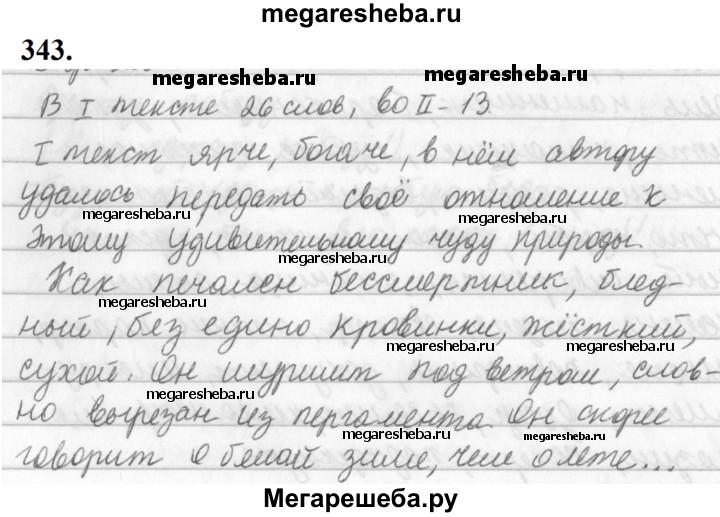 megaresheba.ru
343.
megaresheba.ru megaresheba.ru
В I тексте 26 слов, во II – 13.
I текст ярче, богаче, в нём автору
удалось передать своё отношение к
megaresheba.ru megaresheba.ru
этому удивительному чуду природы.
megaresheba.ru
Как печален бессмертник, блед-
megaresheba.ru
ный, без едино кровинки, жёсткий,
megaresheba.ru megaresheba.ru
сухой. Он шуршит под ветром, слов-
megaresheba.ru
но вырезан из пергамента. Он скорее
megaresheba.ru
говорит о белой зиме, чем о лете...
megaresheba.ru
Мегарешеба.ру